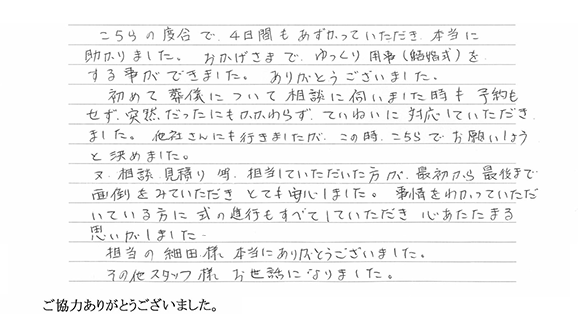 こちらの度合で、4日間もあずかっていただき、本当に
助かりました。おかげさまで、ゆっくり用事(結婚式)を
する事ができました。ありがとうございました。
初めて葬儀について相談に伺いました時も予約も
せず、突然だったにもかかわらず、ていねいに対応していただき
ました。他社さんにも行きましたが、この時、こちらでお願いしよう
と決めました。
又、相談、見積り等、担当していただいた方が、最初から最後まで
面倒をみていただきとても安心しました。事情をわかっていただ
いている方に式の進行もすべてしていただき心あたたまる
思いがしました。
担当の細田様本当にありがとうございました。
その他スタッフ様お世話になりました。
ご協力ありがとうございました。